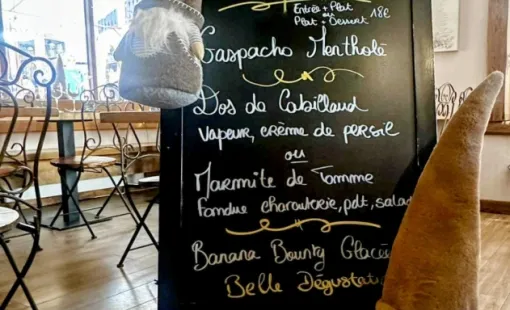 Entrée + Plat
ou
Plat + Dessert 18€
Gaspacho Mentholé
Dos de Cabillaud
Vapeur, crème de persil
ou
Marmite de Tomme
Fondue charcuterie, pdt, salad
Banana Bounty Glacée
Belle Dégustati